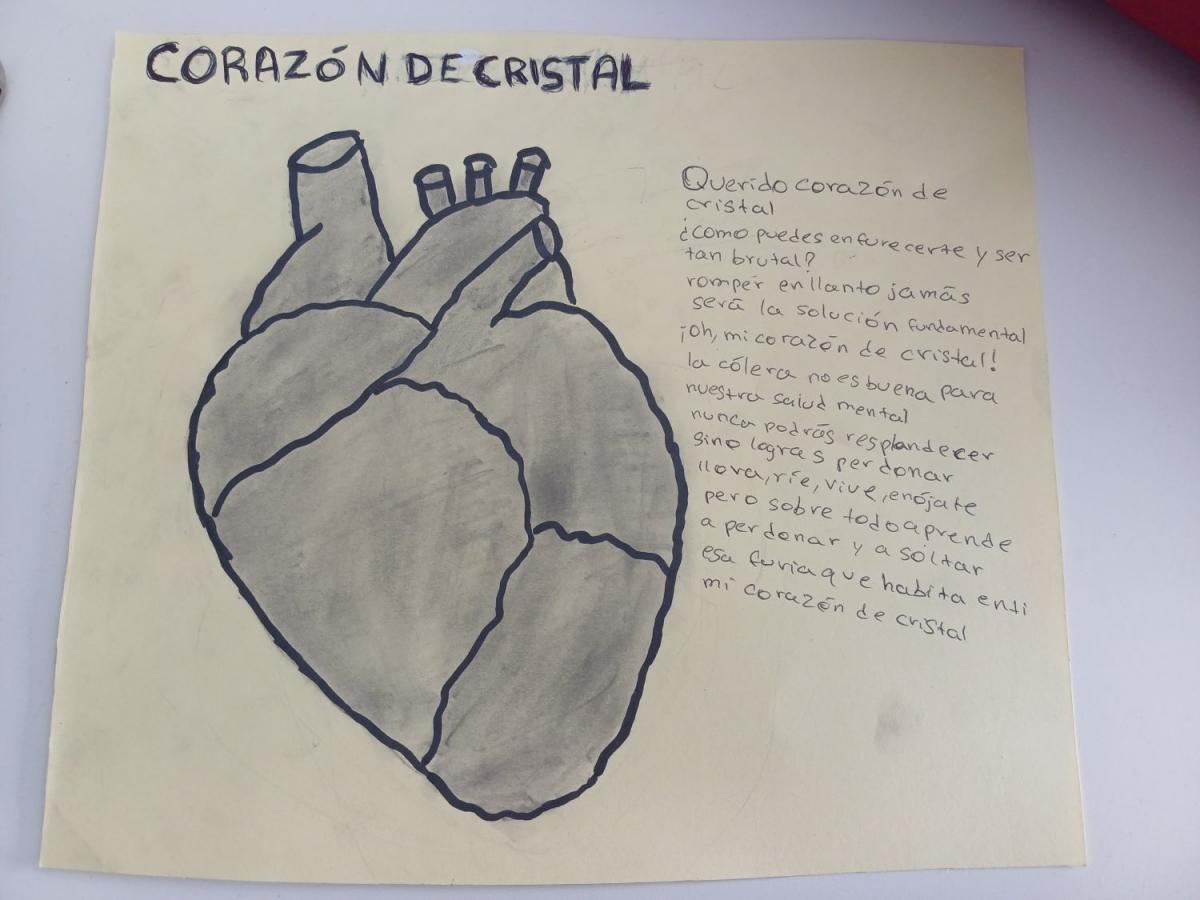 CORAZÓN DE CRISTAL
Querido corazón de
cristal
¿como puedes enfurecerte y ser
tan brutal?
romper en llanto jamás
será la solución fundamental
¡Oh, mi corazón de cristal!
la cólera no es buena para
nuestra salud mental
nunca podrás resplandecer
sino logras perdonar
llora, ríe, vive, enójate
pero sobre todo aprende
a perdonar y a soltar
esa furia que habita en ti
mi corazón de cristal